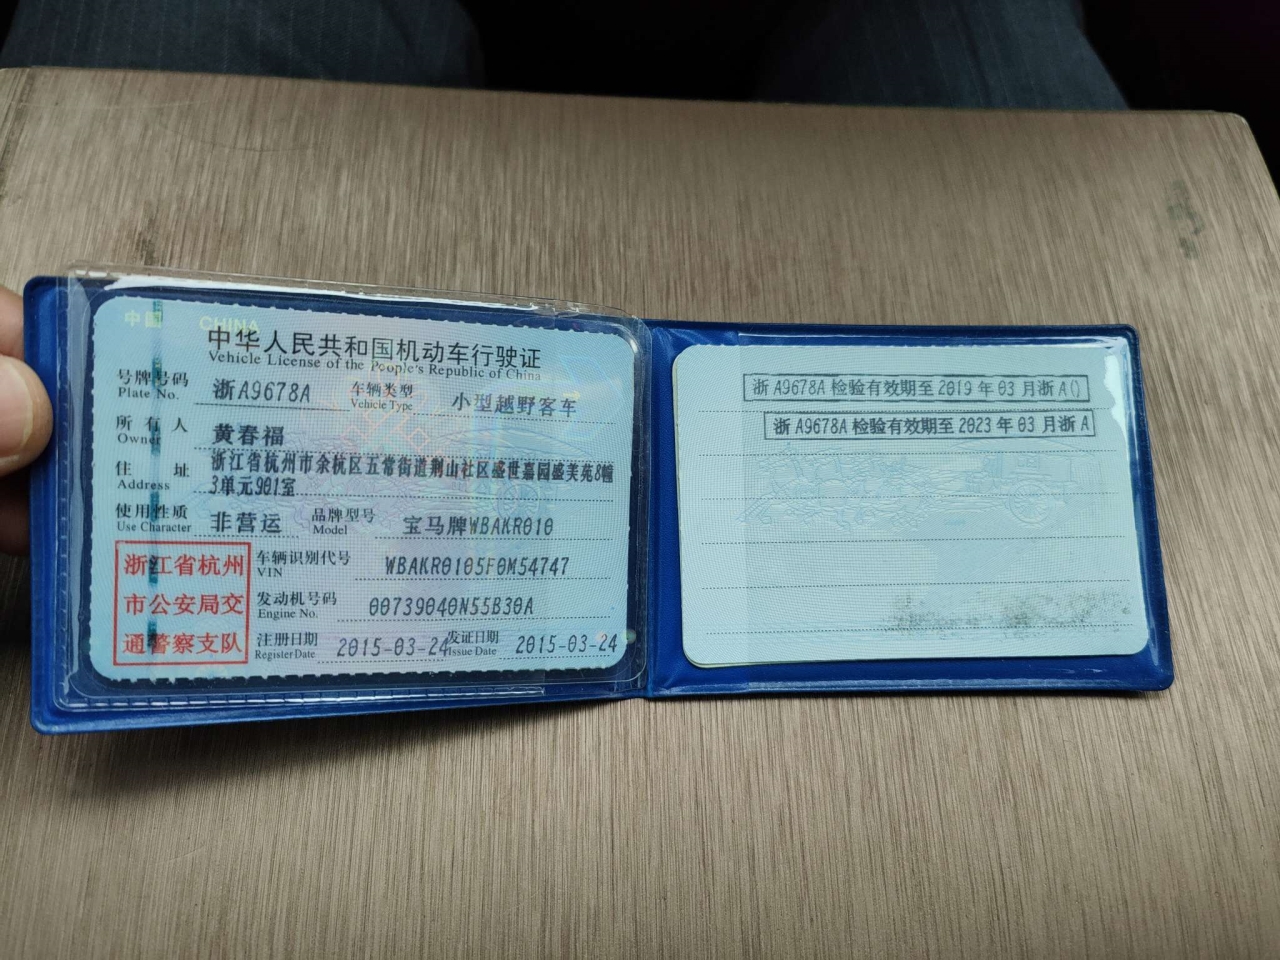 中国 CHINA
中华人民共和国机动车行驶证
Vehicle License of the People's Republic of China
号牌号码 浙A9678A 车辆类型 小型越野客车
Plate No. Vehicle Type
所有人 黄春福
Owner
住址 浙江省杭州市余杭区五常街道荆山社区盛世嘉园盛美苑8幢
Address 3单元901室
使用性质 非营运 品牌型号 宝马牌WBAKR010
Use Character Model
浙江省杭州
市公安局交
通警察支队
车辆识别代号 WBAKR0105F0M54747
VIN
发动机号码 00739040N55B30A
Engine No.
注册日期 2015-03-24 发证日期 2015-03-24
Register Date Issue Date
浙A9678A 检验有效期至 2019 年 03 月浙A()
浙A9678A 检验有效期至 2023 年 03 月浙A